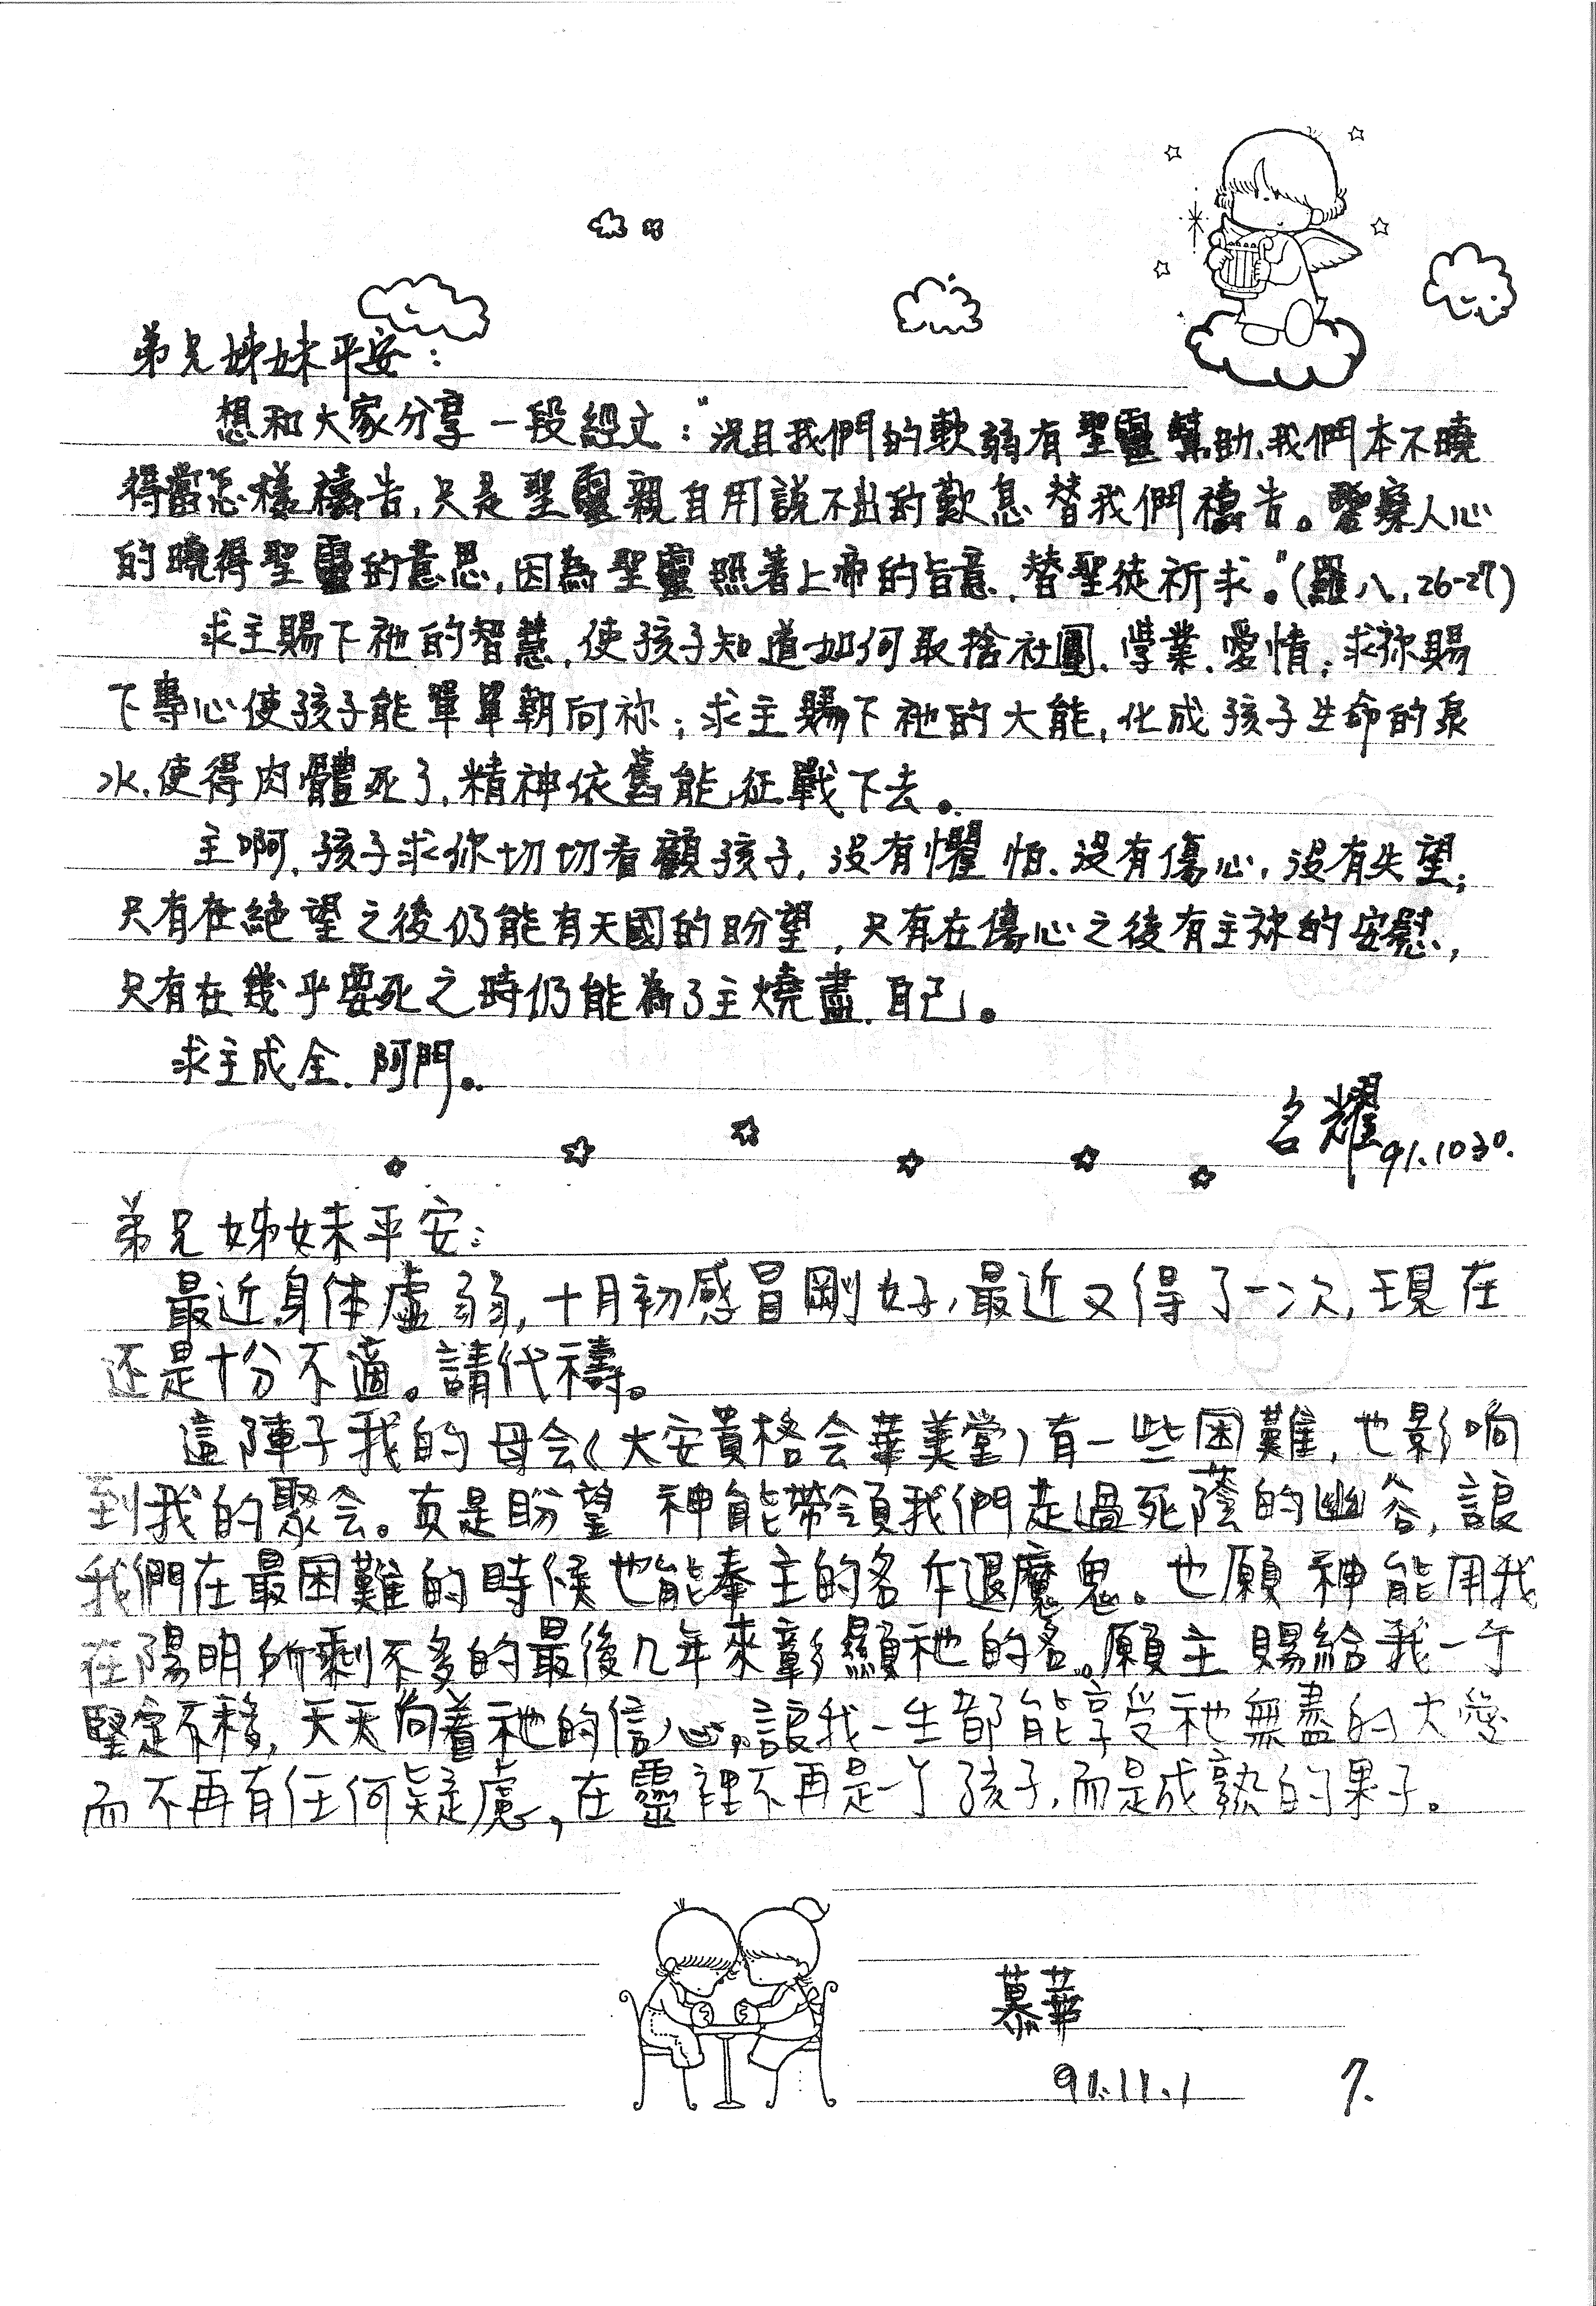 弟兄姊妹平安：
想和大家分享一段經文："況且我們的軟弱有聖靈幫助，我們本不曉
得當怎樣禱告，只是聖靈親自用說不出的歎息替我們禱告。鑒察人心
的曉得聖靈的意思，因為聖靈照著上帝的旨意，替聖徒祈求。"(羅八，26-27)
求主賜下祂的智慧，使孩子知道如何取捨社團、學業、愛情；求祢賜
下專心使孩子能單單朝向祢；求主賜下祂的大能，化成孩子生命的泉
水，使得肉體死了，精神依舊能征戰下去。
主啊，孩子求你切切看顧孩子，沒有懼怕、沒有傷心，沒有失望；
只有在絕望之後仍能有天國的盼望，只有在傷心之後有主祢的安慰，
只有在幾乎要死之時仍能為了主燒盡自己。
求主成全、阿門。
名耀 91.10 30.
弟兄姊妹平安：
最近身体虛弱，十月初感冒剛好，最近又得了一次，現在
还是十分不適。請代禱。
這陣子我的母会(大安貴格会華美堂)有一些困難，也影响
到我的聚会。真是盼望 神能帶領我們走過死蔭的幽谷，讓
我們在最困難的時候也能奉主的名斥退魔鬼。也願 神能用我
在陽明所剩不多的最後几年來彰顯祂的名。願主 賜給我一个
堅定不移，天天向着祂的信心，讓我一生都能享受祂無盡的大愛
而不再有任何疑慮，在靈裡不再是一个孩子，而是成熟的果子。
慕華
91.11.1
7.